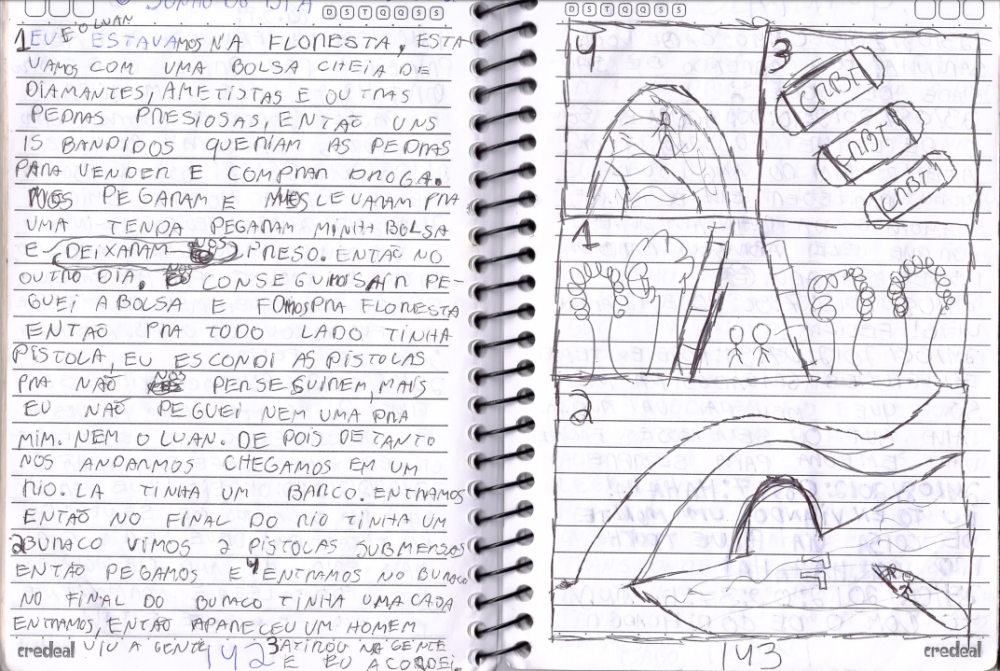 O SONHO DO
D S T Q Q S S
1 EU E O LUAN ESTAVAMOS NA FLORESTA, ESTA
VAMOS COM UMA BOLSA CHEIA DE
DIAMANTES, AMETISTAS E OUTRAS
PEDRAS PRESIOSAS, ENTÃO UNS
15 BANDIDOS QUERIAM AS PEDRAS
PARA VENDER E COMPRAR DROGA.
NOS PEGARAM E NOS LEVARAM PRA
UMA TENDA PEGARAM MINHA BOLSA
E DEIXARAM NOS PRESO. ENTÃO NO
OUTRO DIA, CONSEGUIMOS SAIR PE-
GUEI A BOLSA E FOMOS PRA FLORESTA
ENTÃO PRA TODO LADO TINHA
PISTOLA, EU ESCONDI AS PISTOLAS
PRA NÃO NOS PERSEGUIREM, MAIS
EU NÃO PEGUEI NEM UMA PRA
MIM. NEM O LUAN. DE POIS DE TANTO
NOS ANDARMOS CHEGAMOS EM UM
RIO. LA TINHA UM BARCO. ENTRAMOS
ENTÃO NO FINAL DO RIO TINHA UM
2 BURACO VIMOS 2 PISTOLAS SUBMERSAS
ENTÃO PEGAMOS E 4 ENTRAMOS NO BURACO
NO FINAL DO BURACO TINHA UMA CASA
ENTRAMOS, ENTÃO APARECEU UM HOMEM
VIU A GENTE 3 ATIROU NA GENTE
E EU ACORDEI.
credeal
142
D S T Q Q S S
4
3
1
2
143
credeal